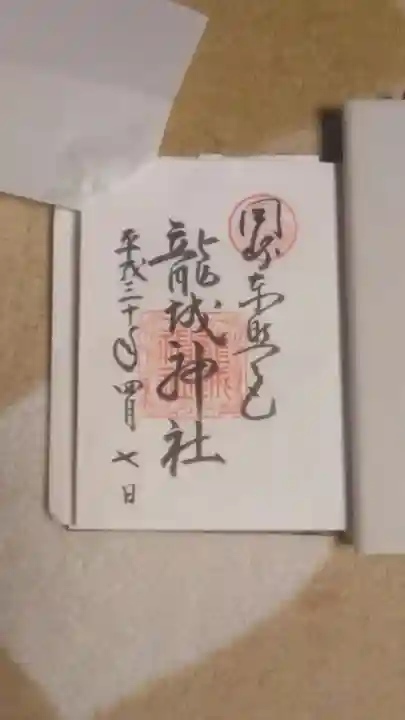 岡崎東照宮
龍城神社
平成三十年四月七日